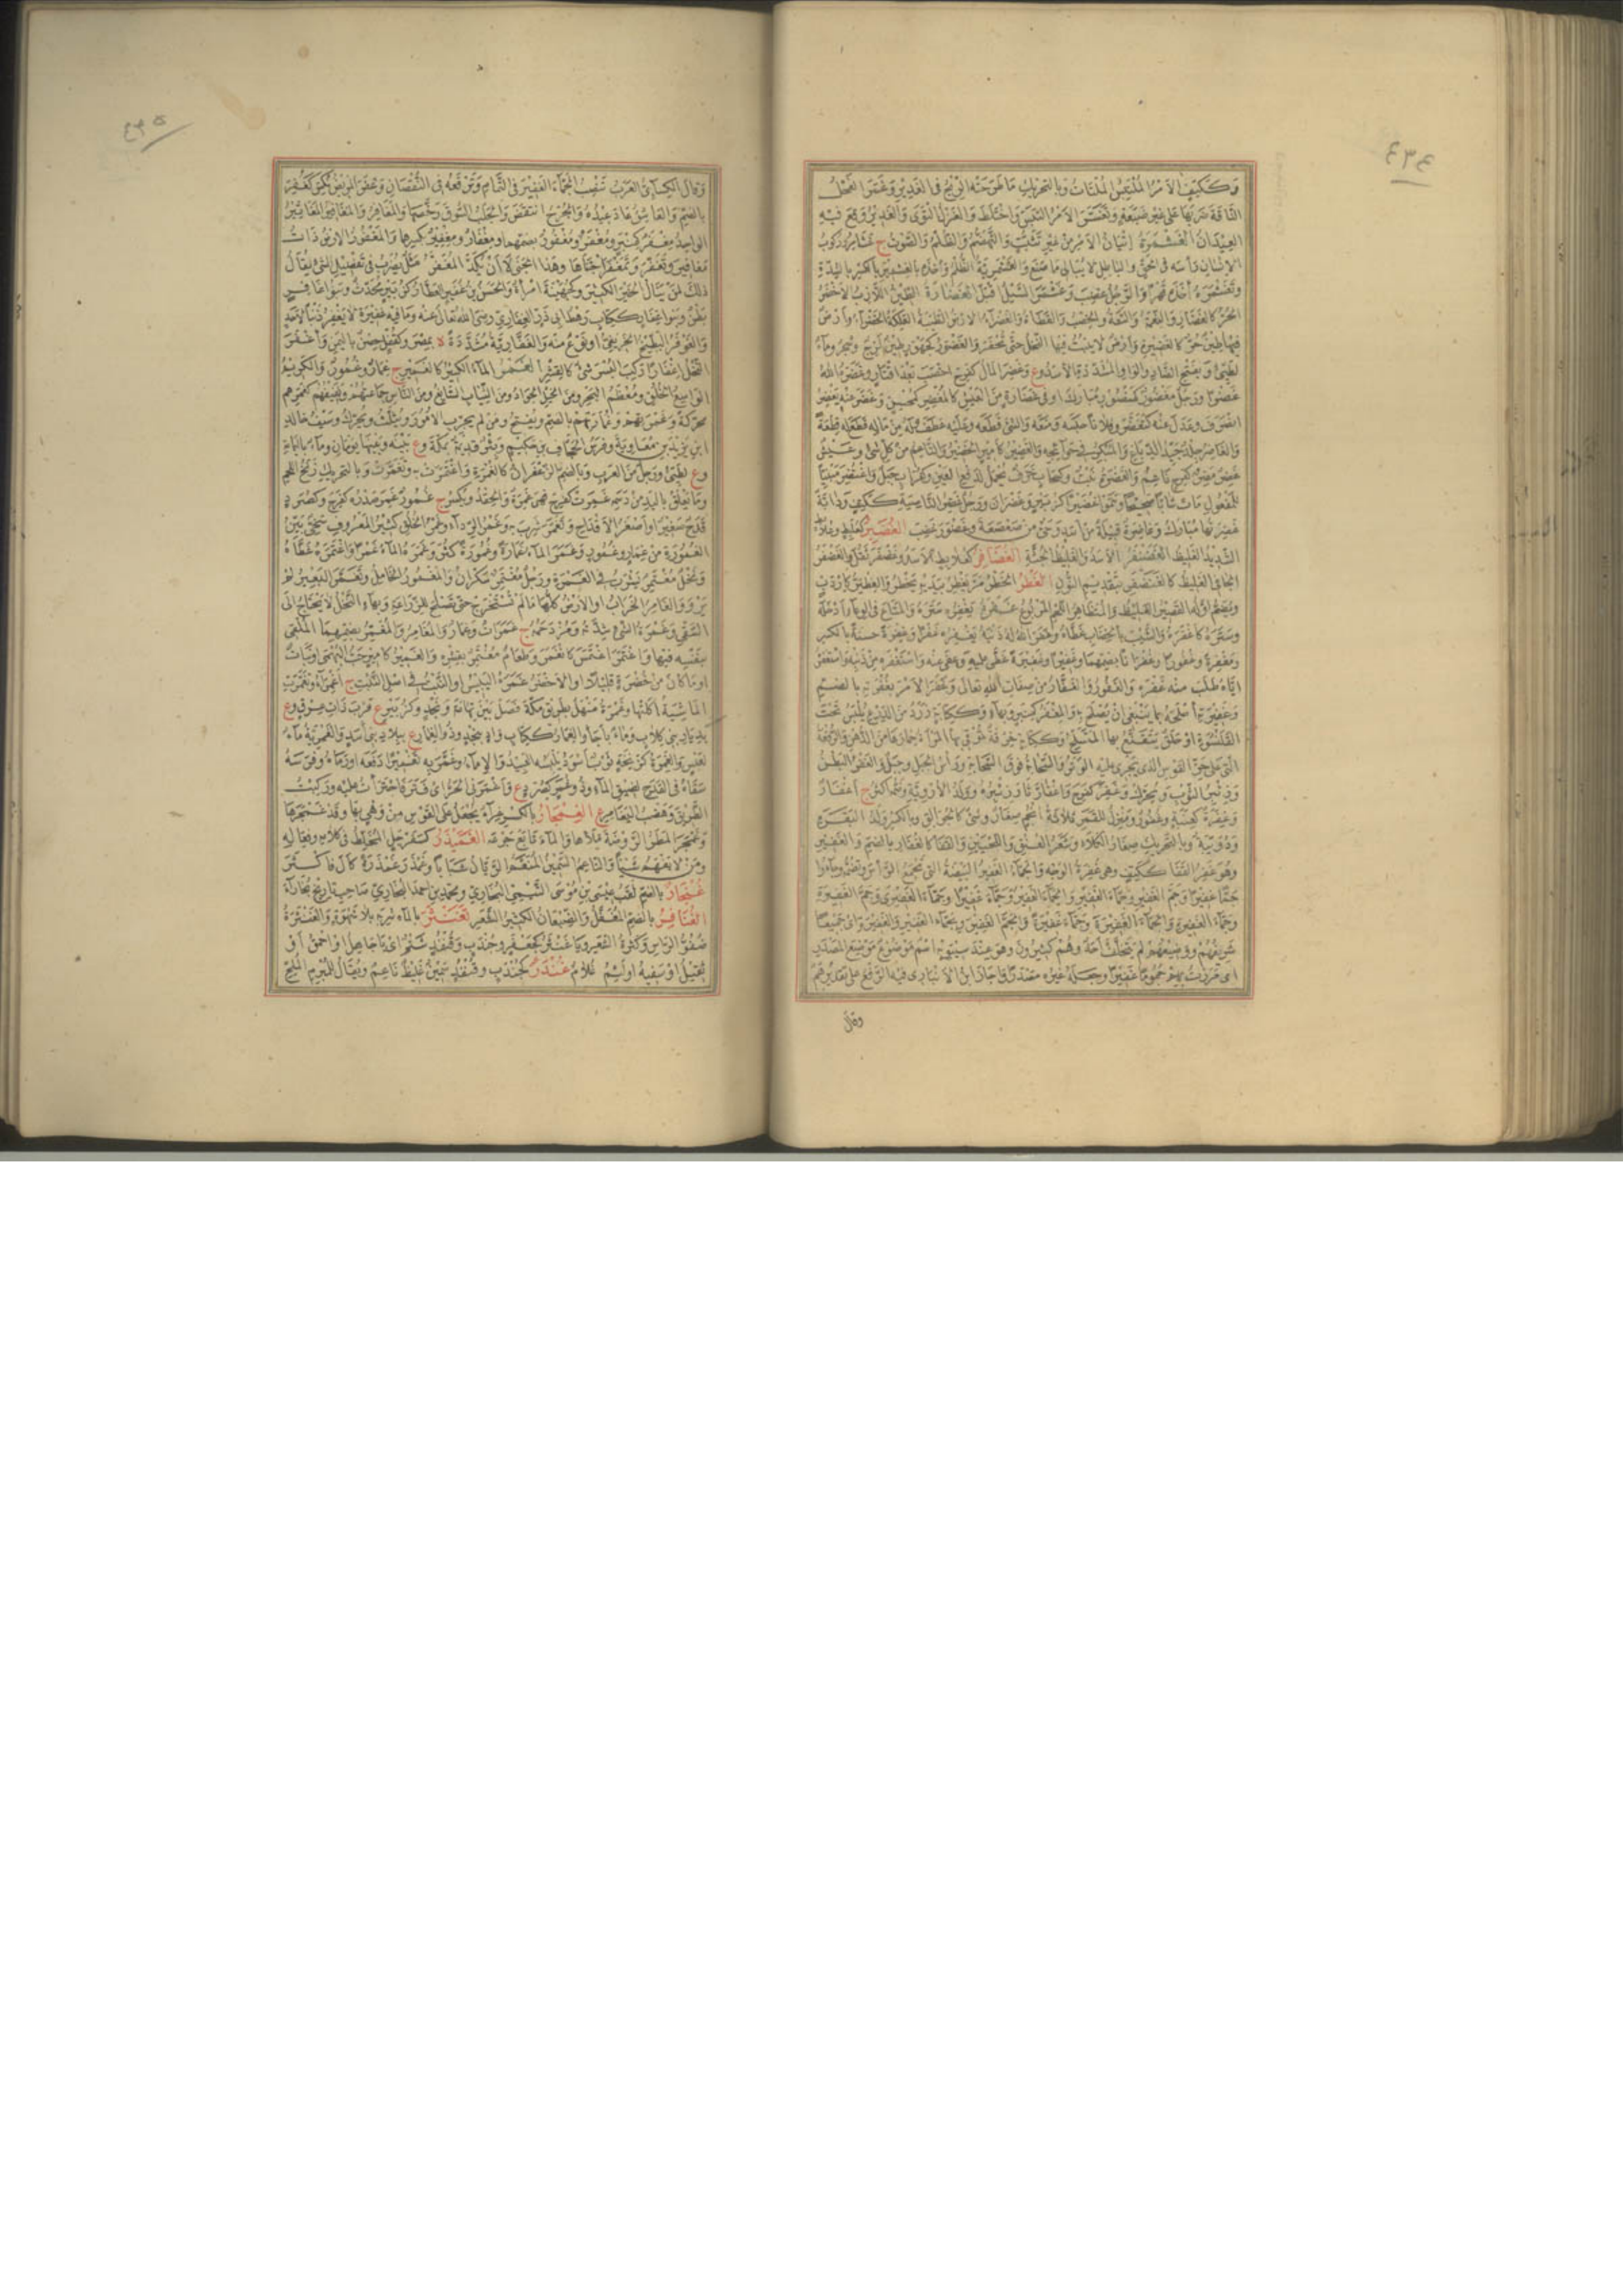 ٤٣٤
وككتيف الامر الملتبس الملتاث وبالتحريك ما طرحته الريح في الغدير وغشمر الفحل
الناقة ضربها على غير ضبعة وتغشمر الامر التبس واختلط والغزل التوى والغدير وقع فيه
العيدان الغشمرة اتيان الامر من غير تثبت والتهضم والظلم والصوت ج غشامر وركوب
الانسان رأسه في الحق والباطل لا يبالي ما صنع والغشمرية الظلم واخذه بالغشمير بالكسر بالشدة
وتغشمره اخذه قهرا والرجل غضب وغشمر السيل اقبل الغضارة الطين اللازب الاخضر
الحر كالغضار والنعمة والسعة والخصب والقطاة والغضراء الارض الطيبة العلكة الخضراء وارض
فيها طين حر كالغضيرة وارض لا ينبت فيها النخل حتى تحفر والغضور كجهور طين لزج وشجر وماء
لطيئ وبفتح الضاد والواو المشددة الاسد وع وغضر المال كفرح اخصب بعد اقتار وغضره الله
غضرا ورجل مغضور كمنصور مبارك او في غضارة من العيش كالمغضر كمحسن وغضر عنه يغضر
انصرف وعدل عنه كتغضر وفلانا حبسه ومنعه والشئ قطعه وعليه عطف وله من ماله قطع له قطعة
والغاضر جلد جيد الدباغ والمبكر في حوائجه والغضير كامير الخضير والناعم من كل شئ وعيش
غضر مضر كفرح ناعم والغضرة نبت
للمفعول مات شابا صحيحا
الشديد الغليظ الغضنفر الاسد والغليظ الجثة الغضافر كعلابط الاسد وغضفر ثقل والغضفر
الجافي الغليظ كالغنضفر بتقديم النون الغطر الخطر مر يغطر بيديه يخطر والغطير كاردب
ويضم اوله القصير الغليظ والمتظاهر اللحم المربوع غفره يغفره ستره والمتاع في الوعاء ادخله
وستره كاغفره والشيب بالخضاب غطاه وغفر الله له ذنبه يغفره غفرا وغفرة حسنة بالكسر
ومغفرة وغفورا وغفرانا بضمهما وغفيرا وغفيرة غطى عليه وعفى عنه واستغفره من ذنبه واستغفر
اياه طلب منه غفره والغفور والغفار من صفات الله تعالى وغفر الامر بغفرته بالضم
وغفيرته اصلحه بما ينبغي ان يصلح به والمغفر كمنبر وبهاء وككتابة زرد من الدرع يلبس تحت
القلنسوة او حلق يتقنع بها المتسلح وككتابة خرقة تقي بها المرأة خمارها من الدهن والرقعة
التي على حز القوس الذي يجري عليه الوتر والسحابة فوق السحابة ورأس الجبل وجبل والغفر البطن
وزئبر الثوب ويحرك وغفر كفرح واغفار ثار زئبره وولد الاروية ويضم اكثر ج اغفار
وغفرة كعنبة وغفور ومنزل للقمر ثلاثة انجم صغار وشئ كالجوالق وبالكسر ولد البقرة
ودويبة وبالتحريك صغار الكلاء وشعر العنق واللحيين والقفا كالغفار بالضم والغفير
وهو غفر القفا ككتف وهي غفرة الوجه والجماء الغفير البيضة التي تجمع الرأس وتضمه وجاءوا
جما غفيرا وجم الغفير وجماء الغفير والجماء الغفير وجماء غفيرا وجماء الغفيرى وجم الغفيرة
وجماء الغفيرة والجماء الغفيرة وجماء غفيرة والجم الغفير وبجماء الغفير والغفيرة اى جميعا
شريفهم ووضيعهم لم يتخلف احد وهم كثيرون وهو عند سيبويه اسم موضوع موضع المصدر
اى مررت بهم جموما غفيرا وجعله غيره مصدرا واجاز ابن الانباري فيه الرفع على تقدير هم
وقال
٤٣٥
وقال الكسائي العرب تنصب الجماء الغفير في التمام وترفعه في النقصان وغفر المريض نكس كغفر
بالضم والعاشق عاد عيده والجرح انتقض والجلب السوق رخصها والمغافر والمغافير المغاثير
الواحد مغفر كمنبر ومغفر ومغفور بضمهما ومغفار ومغفير بكسرهما والمغفور الارض ذات
مغافير وتغفر وتمغفر اجتناها وهذا الجنى لا ان يكد المغفر مثل يضرب في تفضيل الشئ يقال
ذلك لمن ينال الخير الكثير وكجهينة امرأة والحسن بن غفير العطار كزبير محدث وبنوا غافر
بطن وبنوا غفار ككتاب رهط ابي ذر الغفاري رضي الله تعالى عنه وما فيه غفيرة لا يغفر ذنبا لاحد
والغوفر البطيخ الخريفي او نوع منه والغفارية مشددة ة بمصر وكقفل حصن باليمن واغفر
النخل اغفارا ركب البسر شئ كالقشر الغمر الماء الكثير كالغمير ج غمار وغمور والكريم
الواسع الخلق ومعظم البحر ومن الخيل الجواد ومن الثياب السابغ ومن الناس جماعتهم ولفيفهم كغمرهم
محركة وغمرتهم وغمارتهم بالضم ويفتح ومن لم يجرب الامور ويثلث ويحرك وسيف خالد
ابن يزيد بن معاوية وفرس الجحاف بن حكيم وبئر قديمة بمكة وع بينه وبينها يومان وماء باليمامة
وع لطيئ ورجل من العرب وبالضم الزعفران كالغمرة واغتمرت به وتغمرت وبالتحريك زنخ اللحم
وما تعلق باليد من دسمه غمرت كفرح فهي غمرة والحقد ويكسر ج غمور غمر صدره كفرح وكصرد
قدح صغير او اصغر الاقداح وتغمر شرب به وغمر الرداء وغمر الخلق كثير المعروف سخي بين
الغمورة من غمار وغمور وغمر الماء غمارة وغمورة كثر وغمره الماء غمرا واغتمره غطاه
ونخل مغتمر يشرب في الغمرة ورجل مغتمر سكران والمغمور الخامل وتغمر البعير لم
يرو والغامر الخراب او الارض كلها ما لم تستخرج حتى تصلح للزراعة وبهاء النخل لا يحتاج الى
السقي وغمرة الشئ شدته ومزدحمه ج غمرات وغمار والمغامر والمغمر بضمهما الملقي
بنفسه فيها واغتمر اغتمس كانغمر وطعام مغتمر بقشره والغمير كامير حب البهمى او نبات
او ما كان من خضرة قليلا او الاخضر غمره اليبيس او النبت في اصل النبت ج اغمراء وتغمرت
الماشية اكلتها وغمرة منهل بطريق مكة فصل بين تهامة ونجد وكزبير ع قرب ذات عرق وع
بديار بني كلاب وماء باجأ والغمار ككتاب واد بنجد وذو الغمار ع ببلاد بني اسد والغمرية ماء
لعبس والغمرة كزنخة ثوب اسود يلبسه العبيد والاماء وغمر به تغميرا دفعه او رماه وفرسه
سقاه في القدح لضيق الماء وذو غمر كصرد ع واغتمرني الحر اى فتر فاجترأت عليه وركبت
الطريق وهضب اليغامر ع الغمجار بالكسر غراء يجعل على القوس من وهي بها وقد غمجرها
وغمجر المطر الروضة ملاها والماء تابع جرعه الغميذر كسفرجل المخلط في كلامه وفعاله
ومن لا يفهم شيئا والناعم السمين المتنعم او الريان شبابا وغمذر غمذرة كال فاكثر
غنجار بالضم لقب عيسى بن موسى التيمي البخاري ومحمد بن احمد البخاري صاحب تاريخ بخاراء
الغنافر بالضم المغفل والضبعان الكثير الشعر تغنثر بالماء شربه بلا شهوة والغنثرة
ضفو الرأس وكثرة الشعر ويا غنثر كجعفر وجندب وقنفذ شتم اى يا جاهل او احمق او
ثقيل او سفيه او لئيم غلام غندر كجندب وقنفذ سمين غليظ ناعم ويقال للمبرم الملح